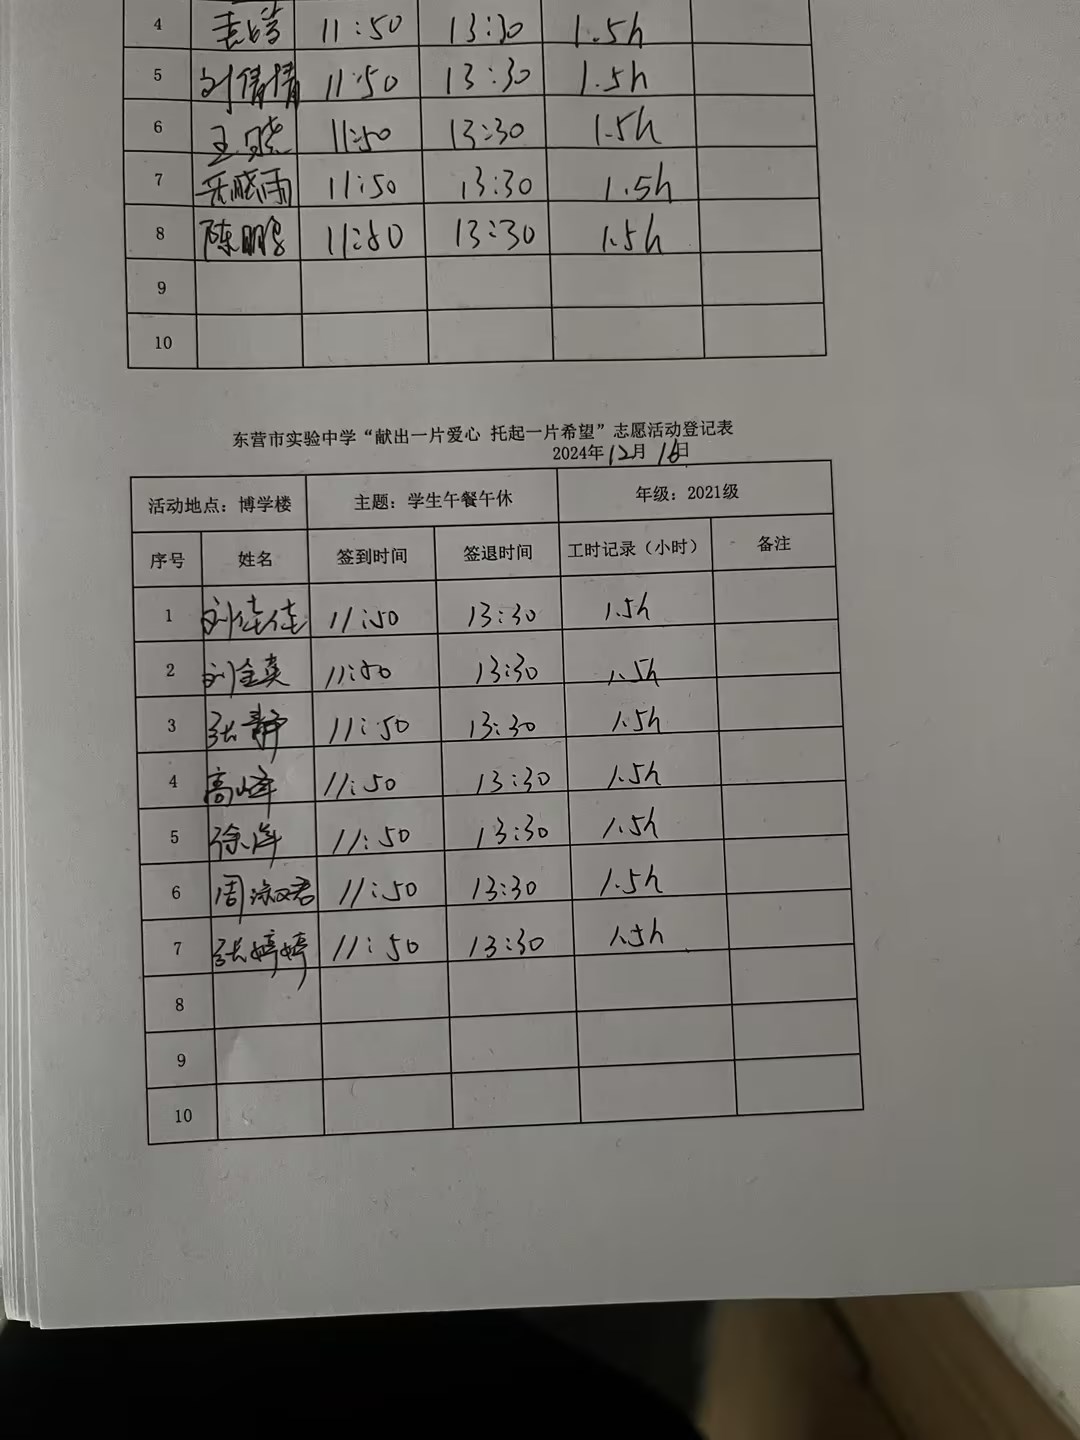 4 11:50 13:30 1.5h
5 刘倩倩 11:50 13:30 1.5h
6 王晓 11:50 13:30 1.5h
7 岳晓雨 11:50 13:30 1.5h
8 陈鹏 11:50 13:30 1.5h
9
10
东营市实验中学“献出一片爱心 托起一片希望”志愿活动登记表
2024年12月16日
活动地点：博学楼 主题：学生午餐午休 年级：2021级
序号 姓名 签到时间 签退时间 工时记录（小时） 备注
1 刘佳佳 11:50 13:30 1.5h
2 刘金英 11:50 13:30 1.5h
3 张静 11:50 13:30 1.5h
4 高峰 11:50 13:30 1.5h
5 徐萍 11:50 13:30 1.5h
6 周淑君 11:50 13:30 1.5h
7 张婷婷 11:50 13:30 1.5h
8
9
10